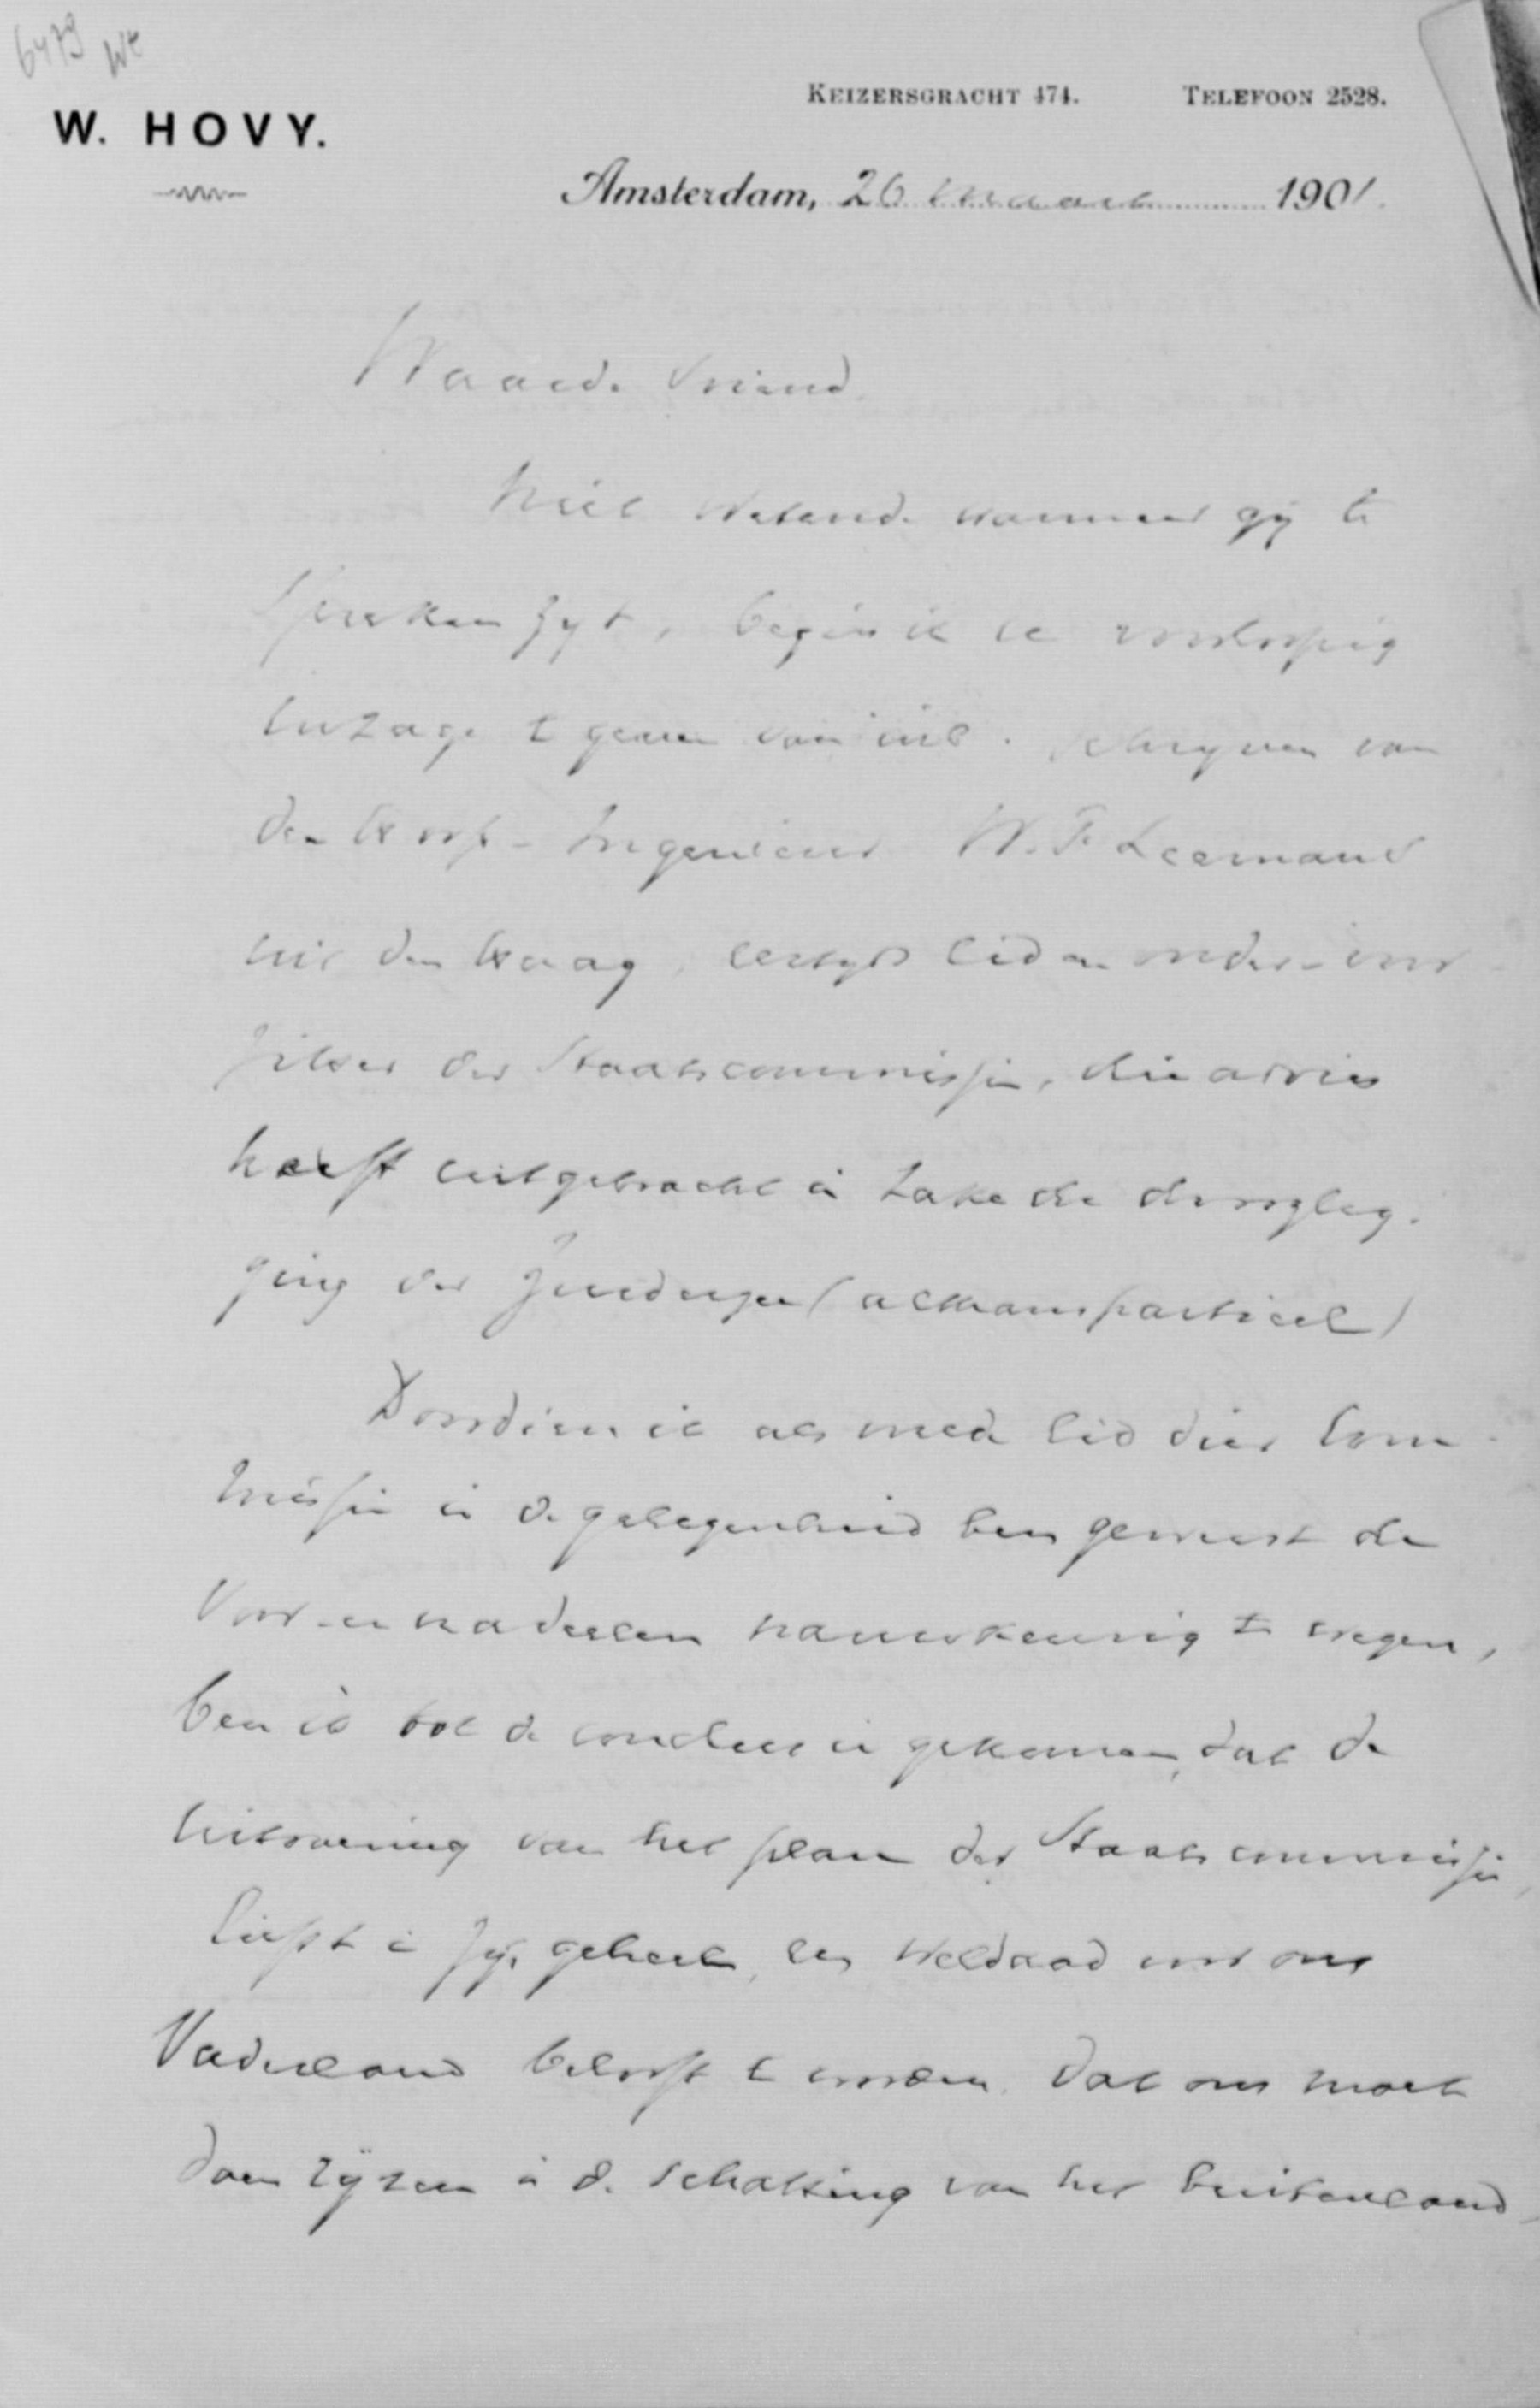 6479 We
KEIZERSGRACHT 474. TELEFOON 2528.
W. HOVY.
Amsterdam, 26 Maart 1901.
Waarde Vriend
Niet wetende wanneer gij te
spreken zyt, begin ik te voorloopig
inzage te geven van inl. schryven van
den Hoof-Ingenieur W. F. Leemans
uit den Haag, eertyds lid en onder-voor-
zitter der Staatscommissie, die advies
heeft uitgebracht in zake de droogleg-
ging der Zuiderzee (althans partieel)
Doordien ik als mede lid dier Com-
missie in de gelegenheid ben geweest de
voor- en nadeelen nauwkeurig te wegen,
ben ik tot de conclusie gekomen, dat de
uitvoering van het plan der Staatscommissie,
liefst in zijn geheel, een weldaad voor ons
Vaderland belooft te worden, dat ons moet
doen rijzen in de schatting van het buitenland,